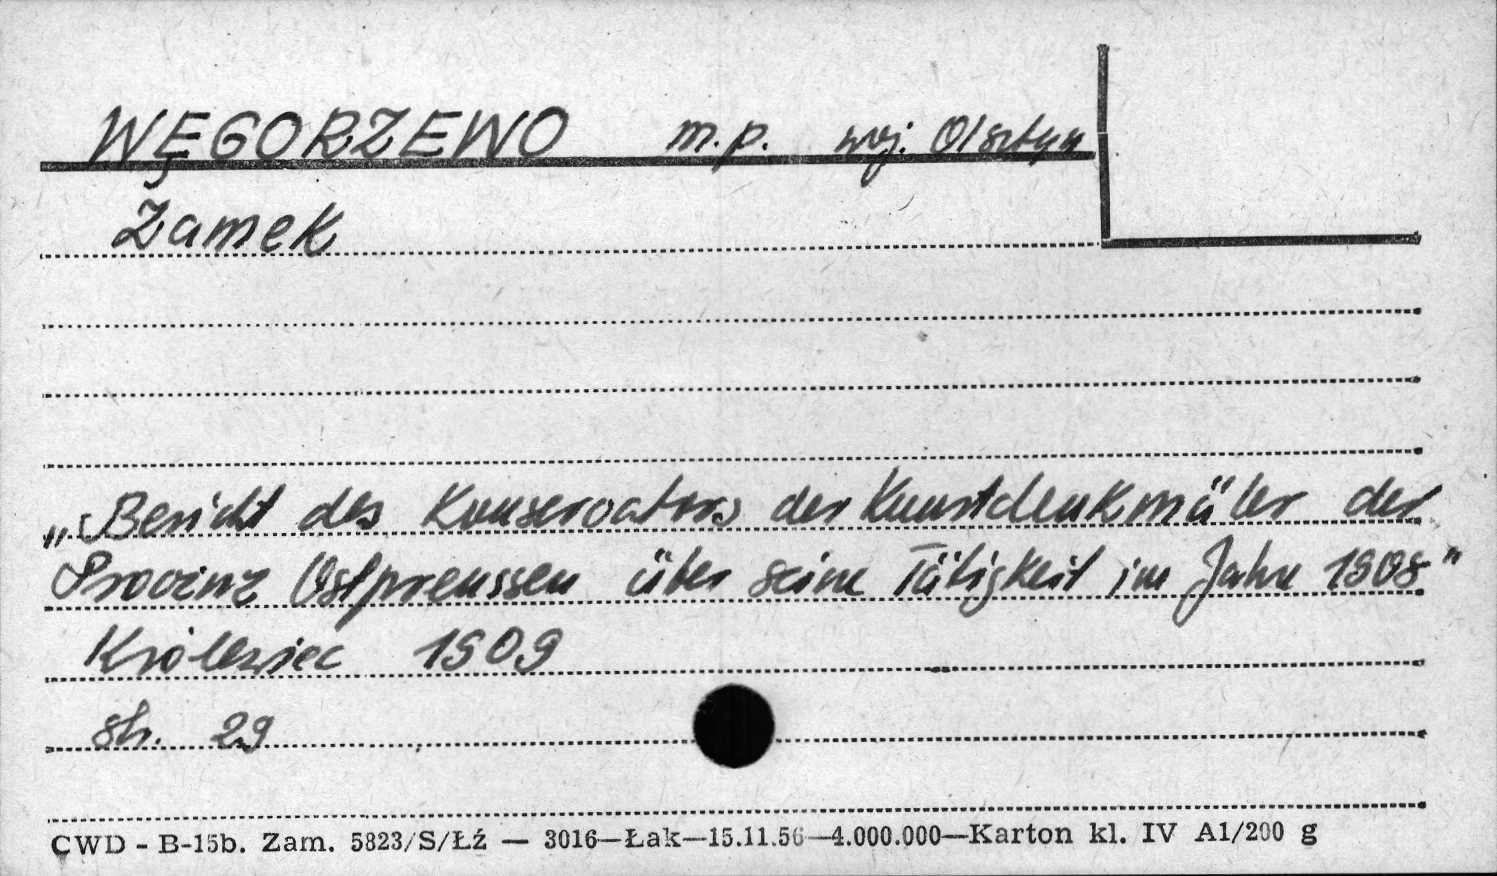 WĘGORZEWO m.p. woj. Olsztyn
Zamek
„Bericht des Konservators der Kunstdenkmäler der
Provinz Ostpreussen über seine Tätigkeit im Jahre 1908"
Królewiec 1909
str. 29
CWD - B-15b. Zam. 5823/S/Łź — 3016—Łak—15.11.56—4.000.000—Karton kl. IV A1/200 g